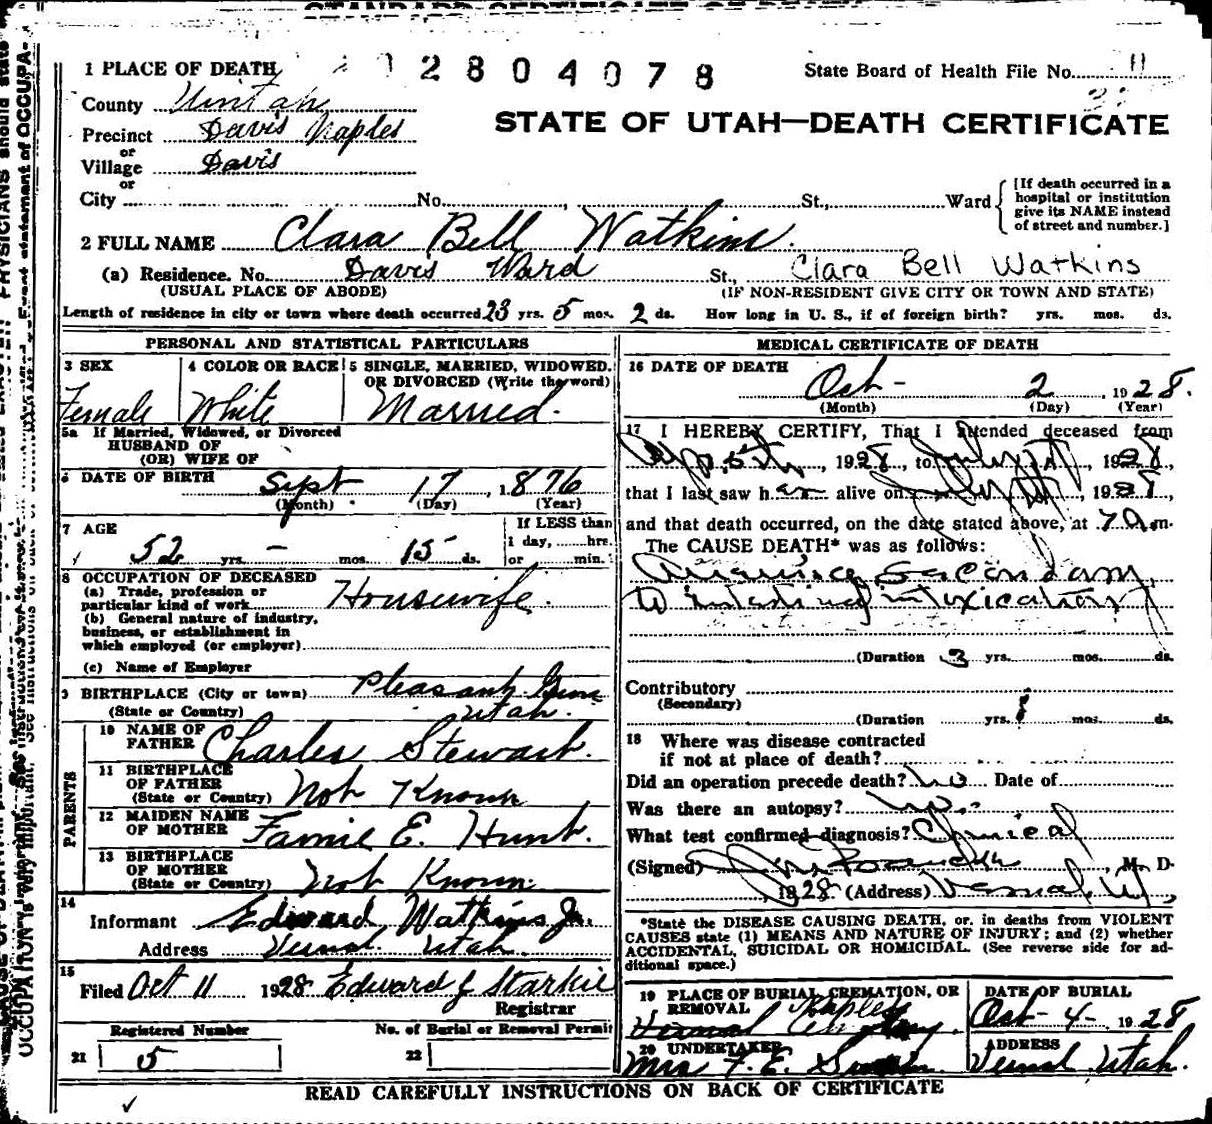 1 PLACE OF DEATH
2 8 0 4 0 7 8
State Board of Health File No. 11
County Uintah
Precinct Davis Naples
or
Village Davis
or
City No. St., Ward
STATE OF UTAH—DEATH CERTIFICATE
[If death occurred in a
hospital or institution
give its NAME instead
of street and number.]
2 FULL NAME Clara Bell Watkins.
(a) Residence. No. Davis Ward St., Clara Bell Watkins
(USUAL PLACE OF ABODE) (IF NON-RESIDENT GIVE CITY OR TOWN AND STATE)
Length of residence in city or town where death occurred 23 yrs. 5 mos. 2 ds. How long in U. S., if of foreign birth? yrs. mos. ds.
PERSONAL AND STATISTICAL PARTICULARS
3 SEX 4 COLOR OR RACE 5 SINGLE, MARRIED, WIDOWED,
OR DIVORCED (Write the word)
Female White Married.
5a If Married, Widowed, or Divorced
HUSBAND OF
(OR) WIFE OF
6 DATE OF BIRTH Sept. 17 1876
(Month) (Day) (Year)
7 AGE If LESS than
1 day, hrs.
52 yrs. – mos. 15 ds. or min.
8 OCCUPATION OF DECEASED
(a) Trade, profession or
particular kind of work Housewife.
(b) General nature of industry,
business, or establishment in
which employed (or employer)
(c) Name of Employer
9 BIRTHPLACE (City or town) Pleasant
(State or Country) Utah.
PARENTS
10 NAME OF
FATHER Charles Stewart.
11 BIRTHPLACE
OF FATHER
(State or Country) Not Known
12 MAIDEN NAME
OF MOTHER Fannie E. Hunt.
13 BIRTHPLACE
OF MOTHER
(State or Country) Not Known.
14
Informant Edward Watkins Jr.
Address Vernal. Utah.
15
Filed Oct 11 1928 Edward J Starkie
Registrar
Registered Number No. of Burial or Removal Permit
21 5 22
MEDICAL CERTIFICATE OF DEATH
16 DATE OF DEATH
Oct- 2 1928.
(Month) (Day) (Year)
17 I HEREBY CERTIFY, That I attended deceased from
1928, to 1928,
that I last saw her alive on 1928,
and that death occurred, on the date stated above, at 7 a m.
The CAUSE DEATH* was as follows:
Secondary
to intestinal intoxication
(Duration 3 yrs. mos. ds.
Contributory
(Secondary)
(Duration yrs. mos. ds.
18 Where was disease contracted
if not at place of death?
Did an operation precede death? no Date of
Was there an autopsy? no.
What test confirmed diagnosis? Clinical
(Signed) M. D.
1928 (Address) Vernal, Ut,
*State the DISEASE CAUSING DEATH, or, in deaths from VIOLENT
CAUSES state (1) MEANS AND NATURE OF INJURY; and (2) whether
ACCIDENTAL, SUICIDAL OR HOMICIDAL. (See reverse side for ad-
ditional space.)
19 PLACE OF BURIAL, CREMATION, OR
REMOVAL Naples
Vernal
DATE OF BURIAL
Oct-4- 1928
20 UNDERTAKER
Mrs F. E.
ADDRESS
Vernal Utah.
READ CAREFULLY INSTRUCTIONS ON BACK OF CERTIFICATE